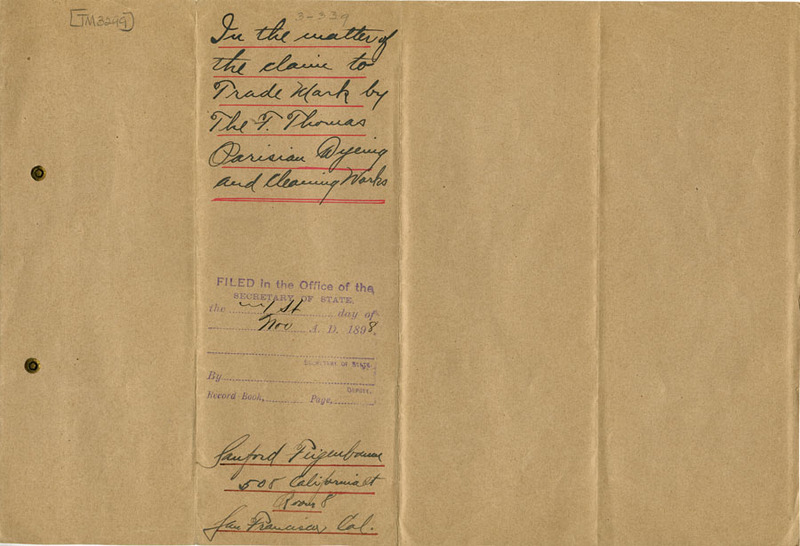 [TM3299]
3-339
In the matter of
the claim to
Trade Mark by
The F. Thomas
Parisian Dyeing
and Cleaning Works
FILED in the Office of the
SECRETARY OF STATE,
the 1st day of
Nov A. D. 1898.
SECRETARY OF STATE.
By
DEPUTY.
Record Book, Page
Sanford Feigenbaum
508 California St
Room 8
San Francisco, Cal.